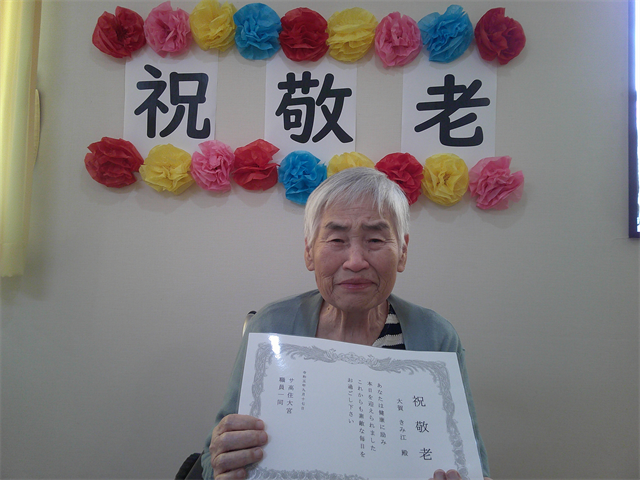 祝敬老
祝敬老
大賀 きみ江 殿
あなたは健康に励み
本日を迎えられました
これからも素敵な毎日を
お過ごし下さい
職員一同